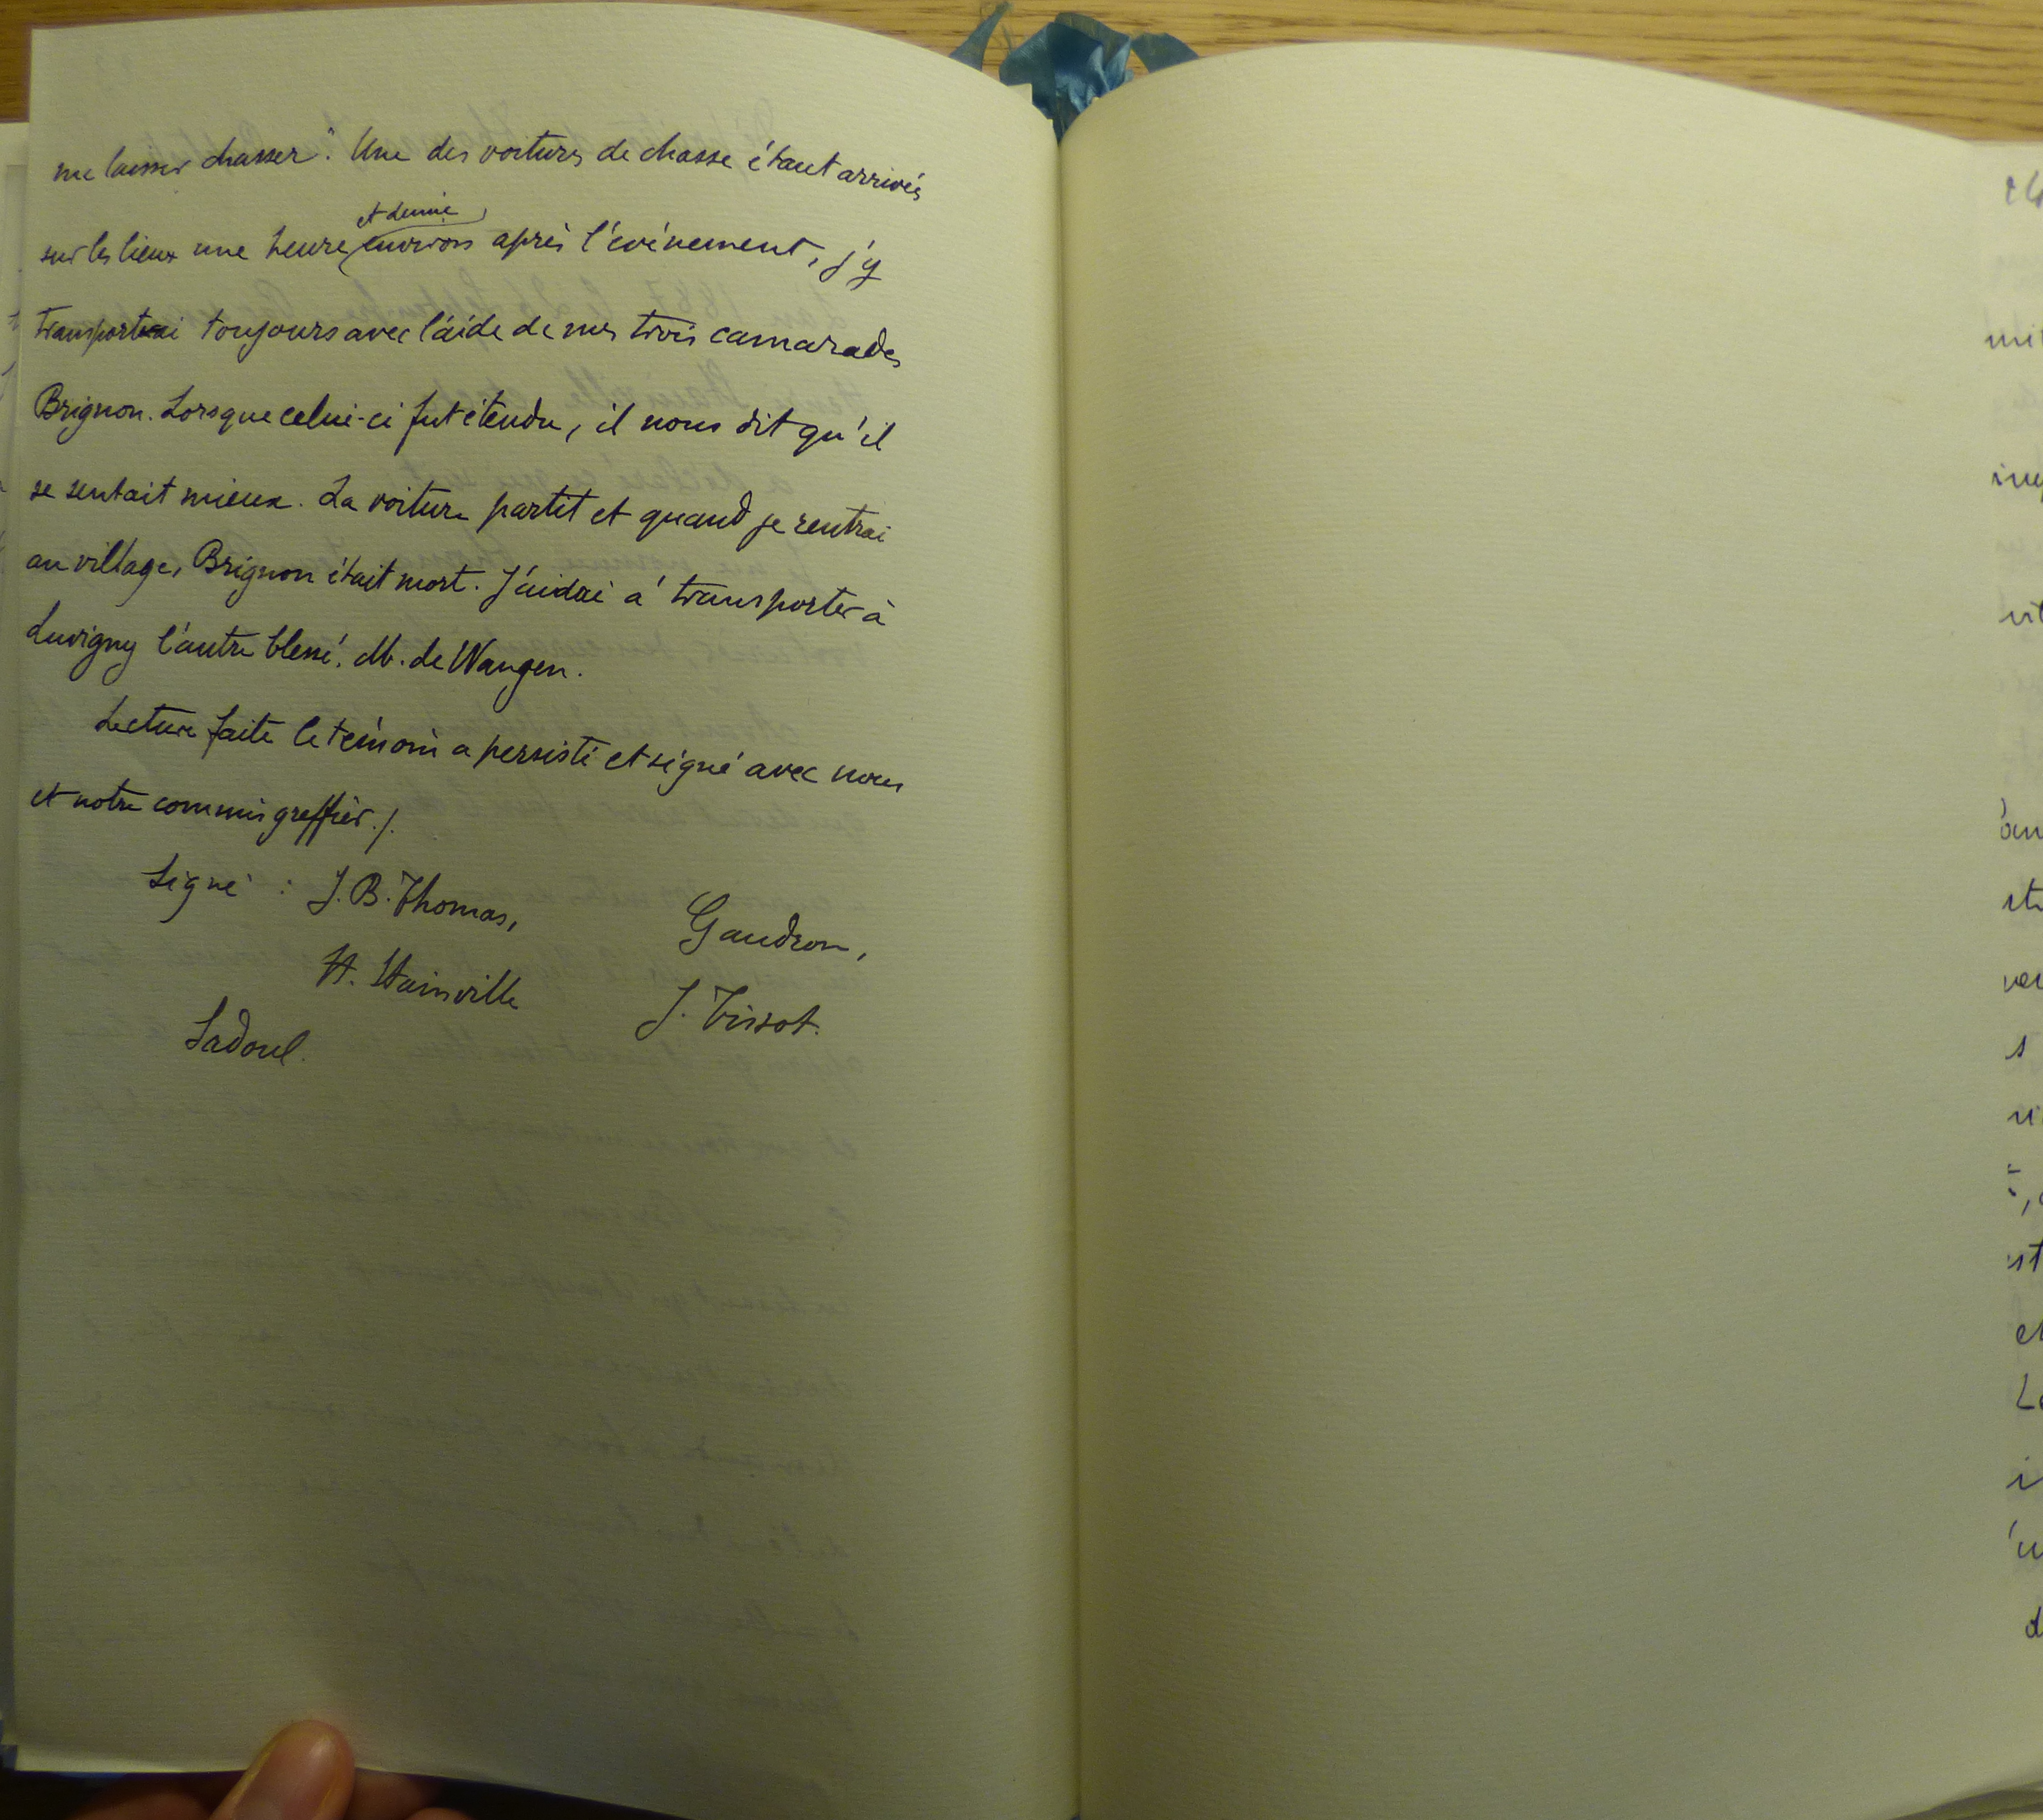 me laisser chasser". Une des voitures de chasse étant arrivés
sur les lieux une heure et demie environ après l'événement, j'y
transportai toujours avec l'aide de mes trois camarades
Brignon. Lorsque celui-ci fut étendu, il nous dit qu'il
se sentait mieux. La voiture partit et quand je rentrai
au village, Brignon était mort. J'aidai à transporter à
Luvigny l'autre blessé. M. de Wangen.
Lecture faite le témoin a persisté et signé avec nous
et notre commis greffier./.
Signé : J. B. Thomas, Gaudron,
H. Stainville J. Tissot.
Sadoul.